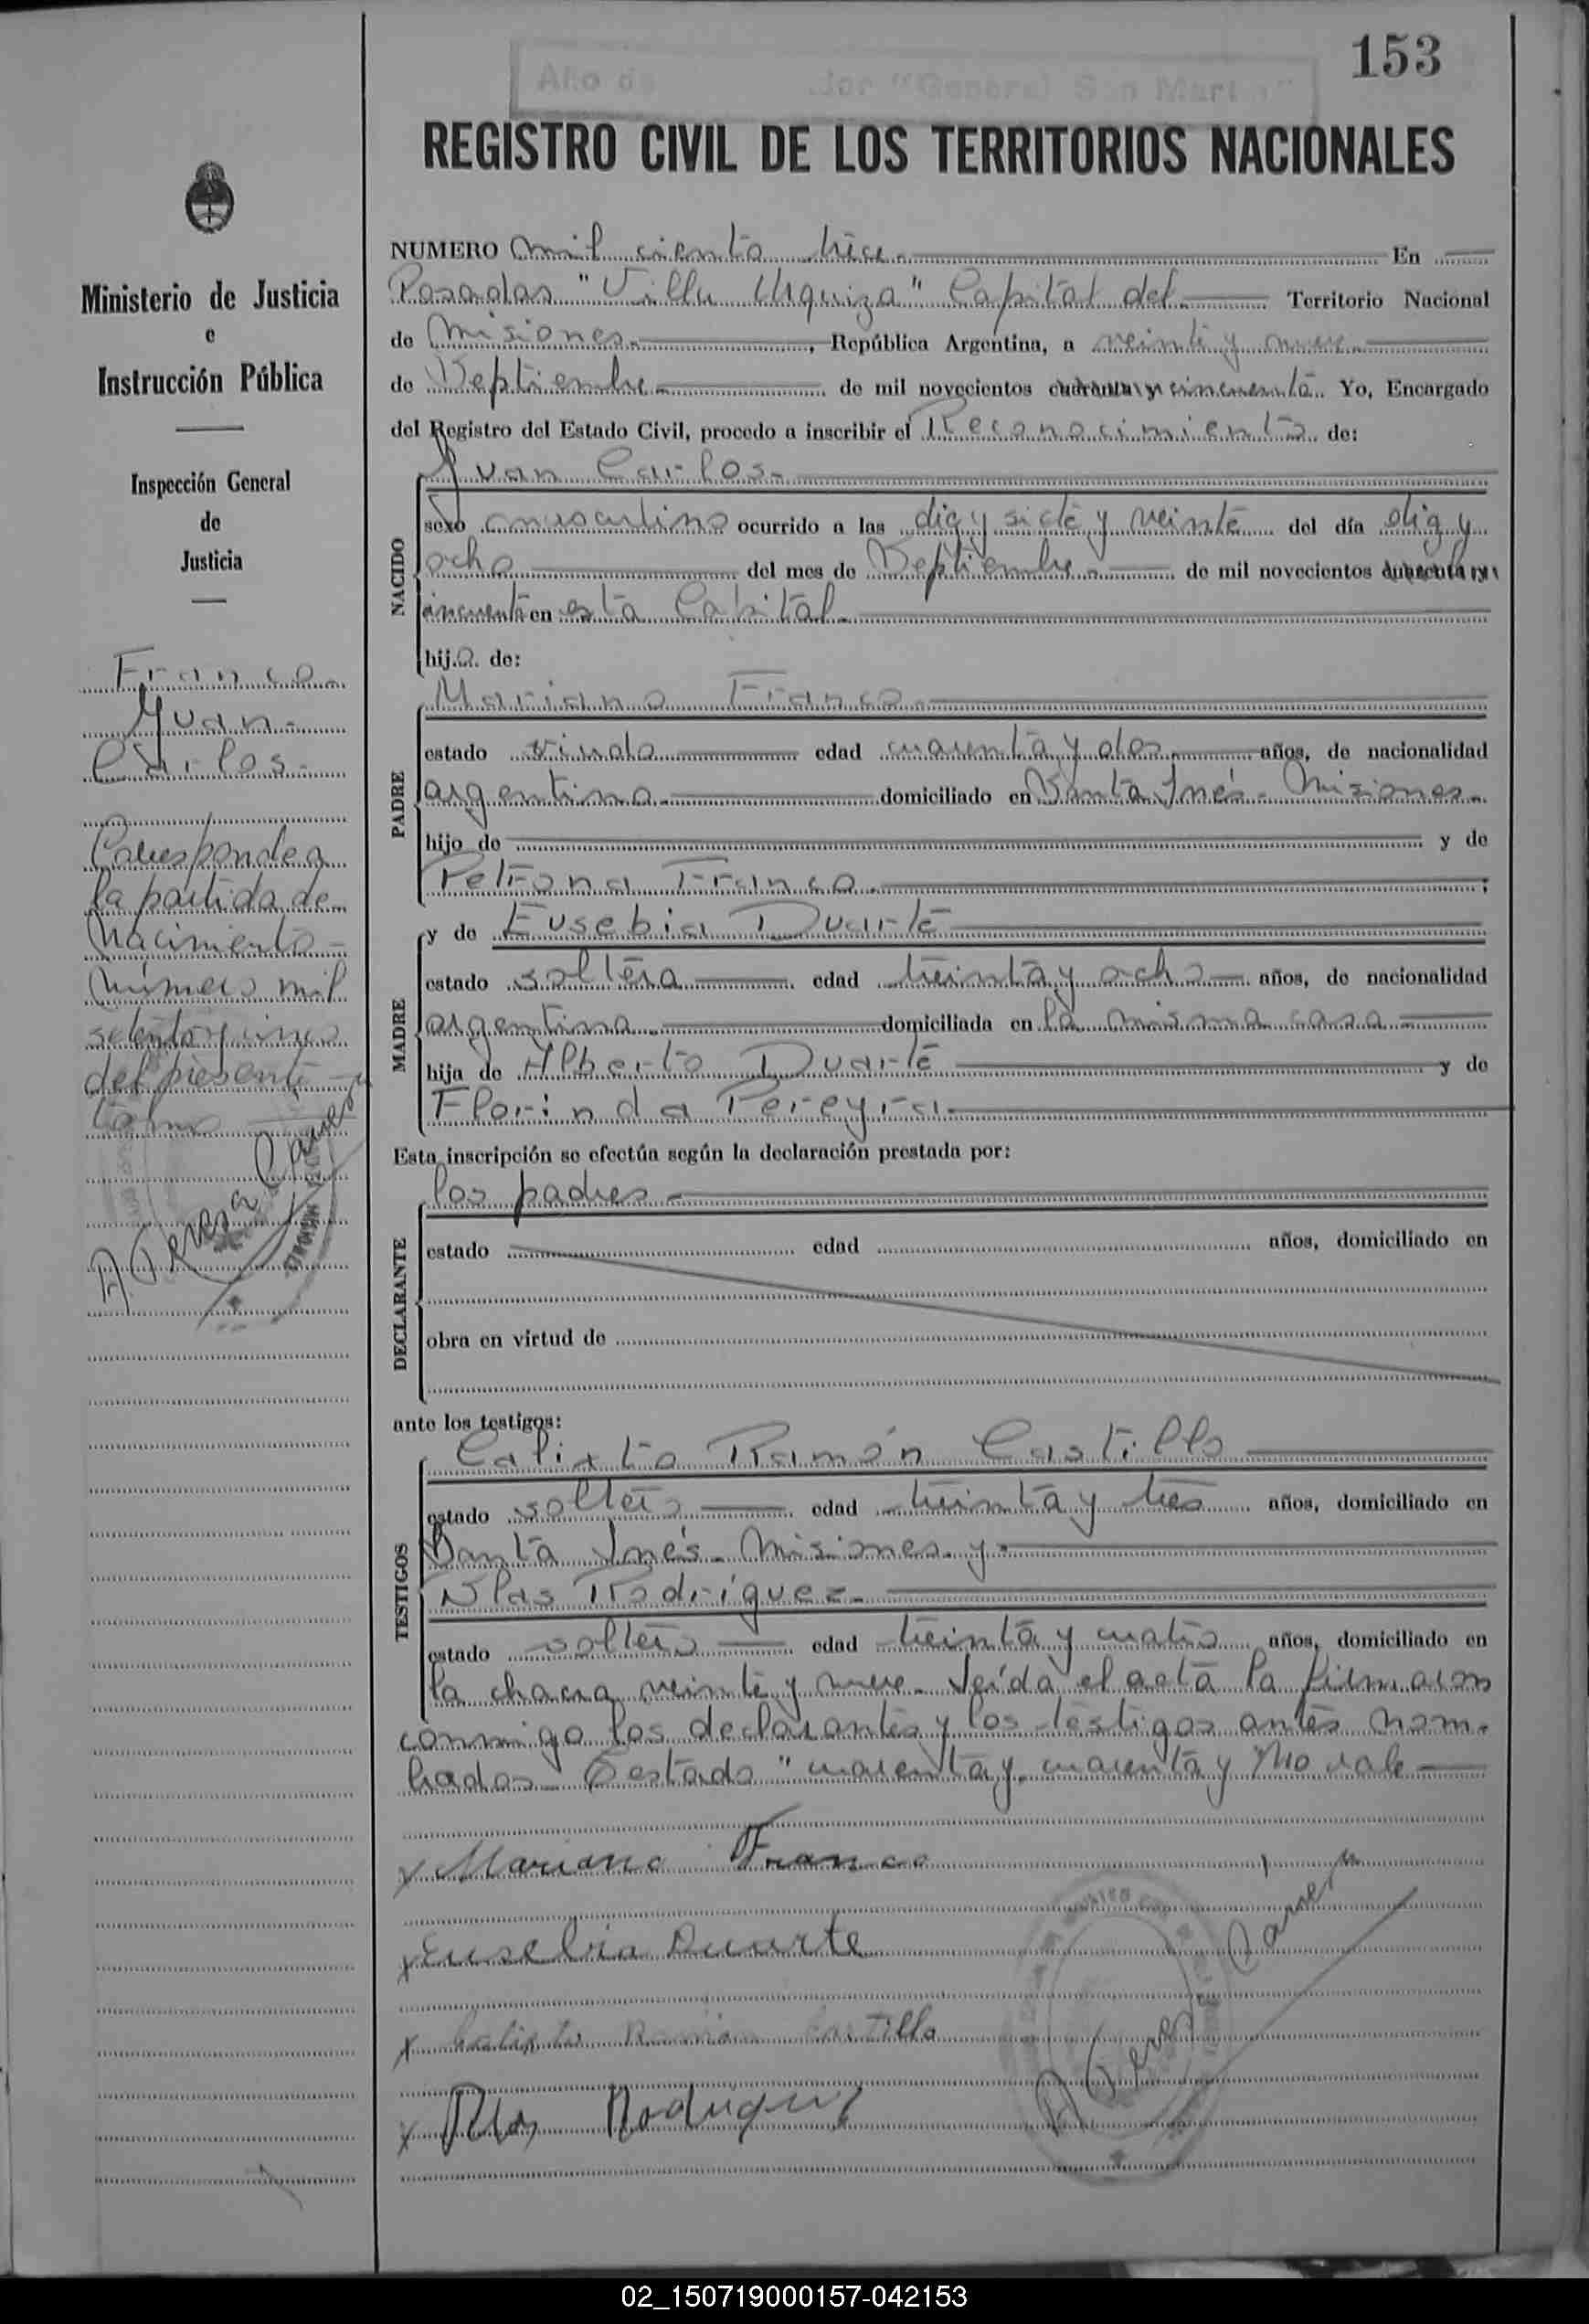 153
Año de
"General San Martín"
REGISTRO CIVIL DE LOS TERRITORIOS NACIONALES
Ministerio de Justicia
e
Instrucción Pública
Inspección General
de
Justicia
Franco.
Juan
Carlos.
Corresponde a
la partida de
Nacimiento
número mil
setenta y cinco
del presente
tomo
NUMERO mil ciento trece. En
Posadas "Villa Urquiza" Capital del Territorio Nacional
de Misiones. , República Argentina, a veinte y nueve
de Septiembre de mil novecientos cuarenta y cincuenta. Yo, Encargado
del Registro del Estado Civil, procedo a inscribir el Reconocimiento de:
NACIDO
Juan Carlos.
sexo masculino ocurrido a las diez y siete y veinte del día diez y
ocho del mes de Septiembre. de mil novecientos cuarenta y
cincuenta en esta Capital.
hijo de:
PADRE
Mariano Franco.
estado viudo edad cuarenta y dos años, de nacionalidad
argentino. domiciliado en Santa Inés. Misiones.
hijo de y de
Petrona Franco. ;
MADRE
y de Eusebia Duarte
estado soltera edad treinta y ocho años, de nacionalidad
argentina. domiciliada en la misma casa
hija de Alberto Duarte y de
Florinda Pereyra.
Esta inscripción se efectúa según la declaración prestada por:
DECLARANTE
los padres.
estado edad años, domiciliado en
obra en virtud de
ante los testigos:
TESTIGOS
Calixto Ramón Castillo
estado soltero edad treinta y tres años, domiciliado en
Santa Inés. Misiones. y
Blas Rodríguez.
estado soltero edad treinta y cuatro años, domiciliado en
la chacra veinte y nueve. Leída el acta la firmaron
conmigo los declarantes y los testigos antes nom-
brados. Testado "cuarenta y. cuarenta y No vale
x Mariano Franco
x Eusebia Duarte
x Calixto Ramón Castillo
x Blas Rodriguez
02_150719000157-042153